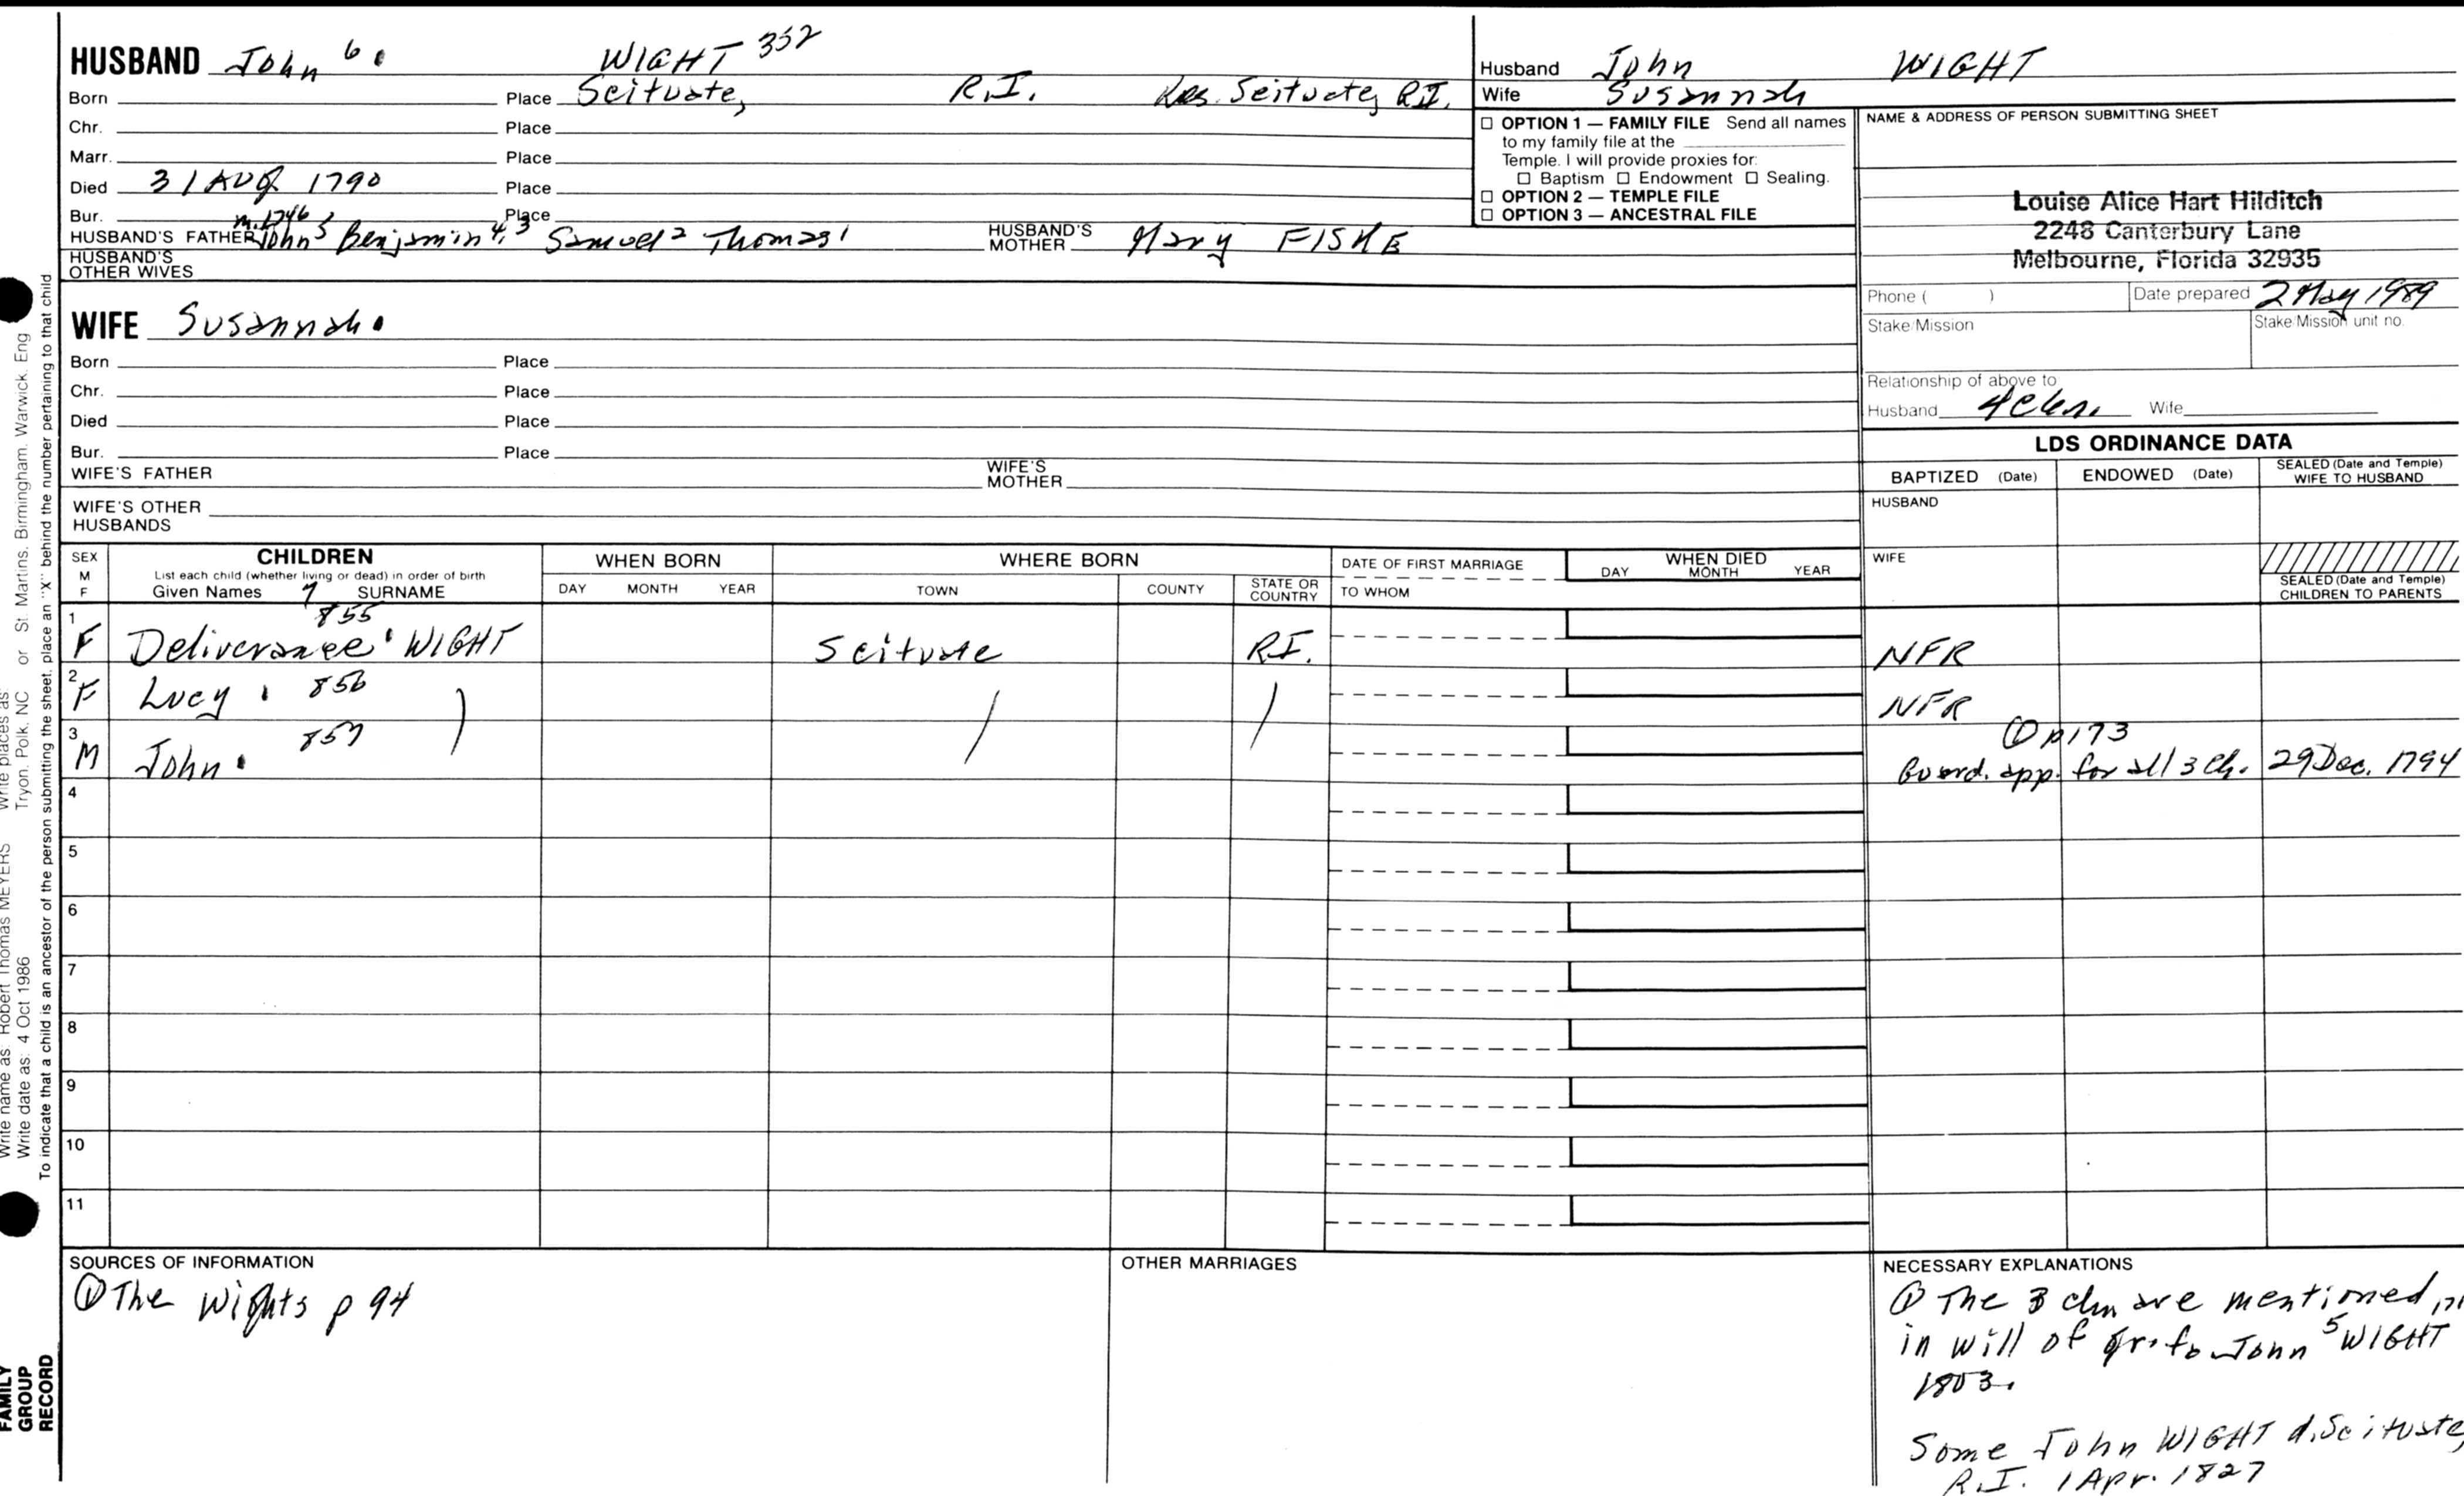 HUSBAND John 6. WIGHT 352
Born Place Scituate, R.I. Res. Scituate, R.I.
Chr. Place
Marr. Place
Died 31 AUG 1790 Place
Bur. Place
m. 1746
HUSBAND'S FATHER John 5 Benjamin 4, 3 Samuel 2 Thomas 1 HUSBAND'S MOTHER Mary FISKE
HUSBAND'S OTHER WIVES
WIFE Susannah.
Born Place
Chr. Place
Died Place
Bur. Place
WIFE'S FATHER WIFE'S MOTHER
WIFE'S OTHER HUSBANDS
Husband John WIGHT
Wife Susannah
☐ OPTION 1 — FAMILY FILE Send all names
to my family file at the
Temple. I will provide proxies for:
☐ Baptism ☐ Endowment ☐ Sealing.
☐ OPTION 2 — TEMPLE FILE
☐ OPTION 3 — ANCESTRAL FILE
NAME & ADDRESS OF PERSON SUBMITTING SHEET
Louise Alice Hart Hilditch
2248 Canterbury Lane
Melbourne, Florida 32935
Phone ( ) Date prepared 2 May 1989
Stake/Mission Stake/Mission unit no.
Relationship of above to
Husband Wife
LDS ORDINANCE DATA
BAPTIZED (Date) ENDOWED (Date) SEALED (Date and Temple) WIFE TO HUSBAND
HUSBAND
WIFE
SEALED (Date and Temple)
CHILDREN TO PARENTS
SEX M F CHILDREN WHEN BORN WHERE BORN DATE OF FIRST MARRIAGE WHEN DIED
List each child (whether living or dead) in order of birth
Given Names 7 SURNAME DAY MONTH YEAR TOWN COUNTY STATE OR COUNTRY TO WHOM DAY MONTH YEAR
855
1 F Deliverance WIGHT Scituate R.I. NFR
2 F Lucy . 856 ) / / NFR
① p 173
3 M John . 857 Guard. app. for all 3 Ch. 29 Dec. 1794
4
5
6
7
8
9
10
11
SOURCES OF INFORMATION
① The Wights p 94
OTHER MARRIAGES
NECESSARY EXPLANATIONS
① The 3 chn are mentioned
in will of gr. fa John 5 WIGHT
1803.
Some John WIGHT d. Scituate,
R.I. 1 Apr. 1827
Write name as: Robert Thomas MEYERS Write places as: Tryon, Polk, NC or St. Martins, Birmingham, Warwick, Eng
Write date as: 4 Oct 1986
To indicate that a child is an ancestor of the person submitting the sheet, place an "X" behind the number pertaining to that child
FAMILY
GROUP
RECORD